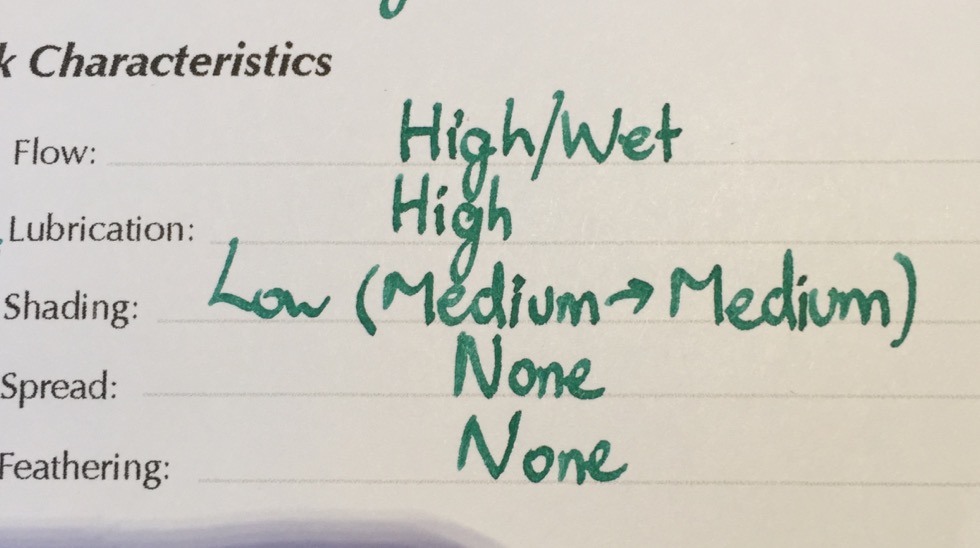 k Characteristics
Flow: High/Wet
Lubrication: High
Shading: Low (Medium → Medium)
Spread: None
Feathering: None